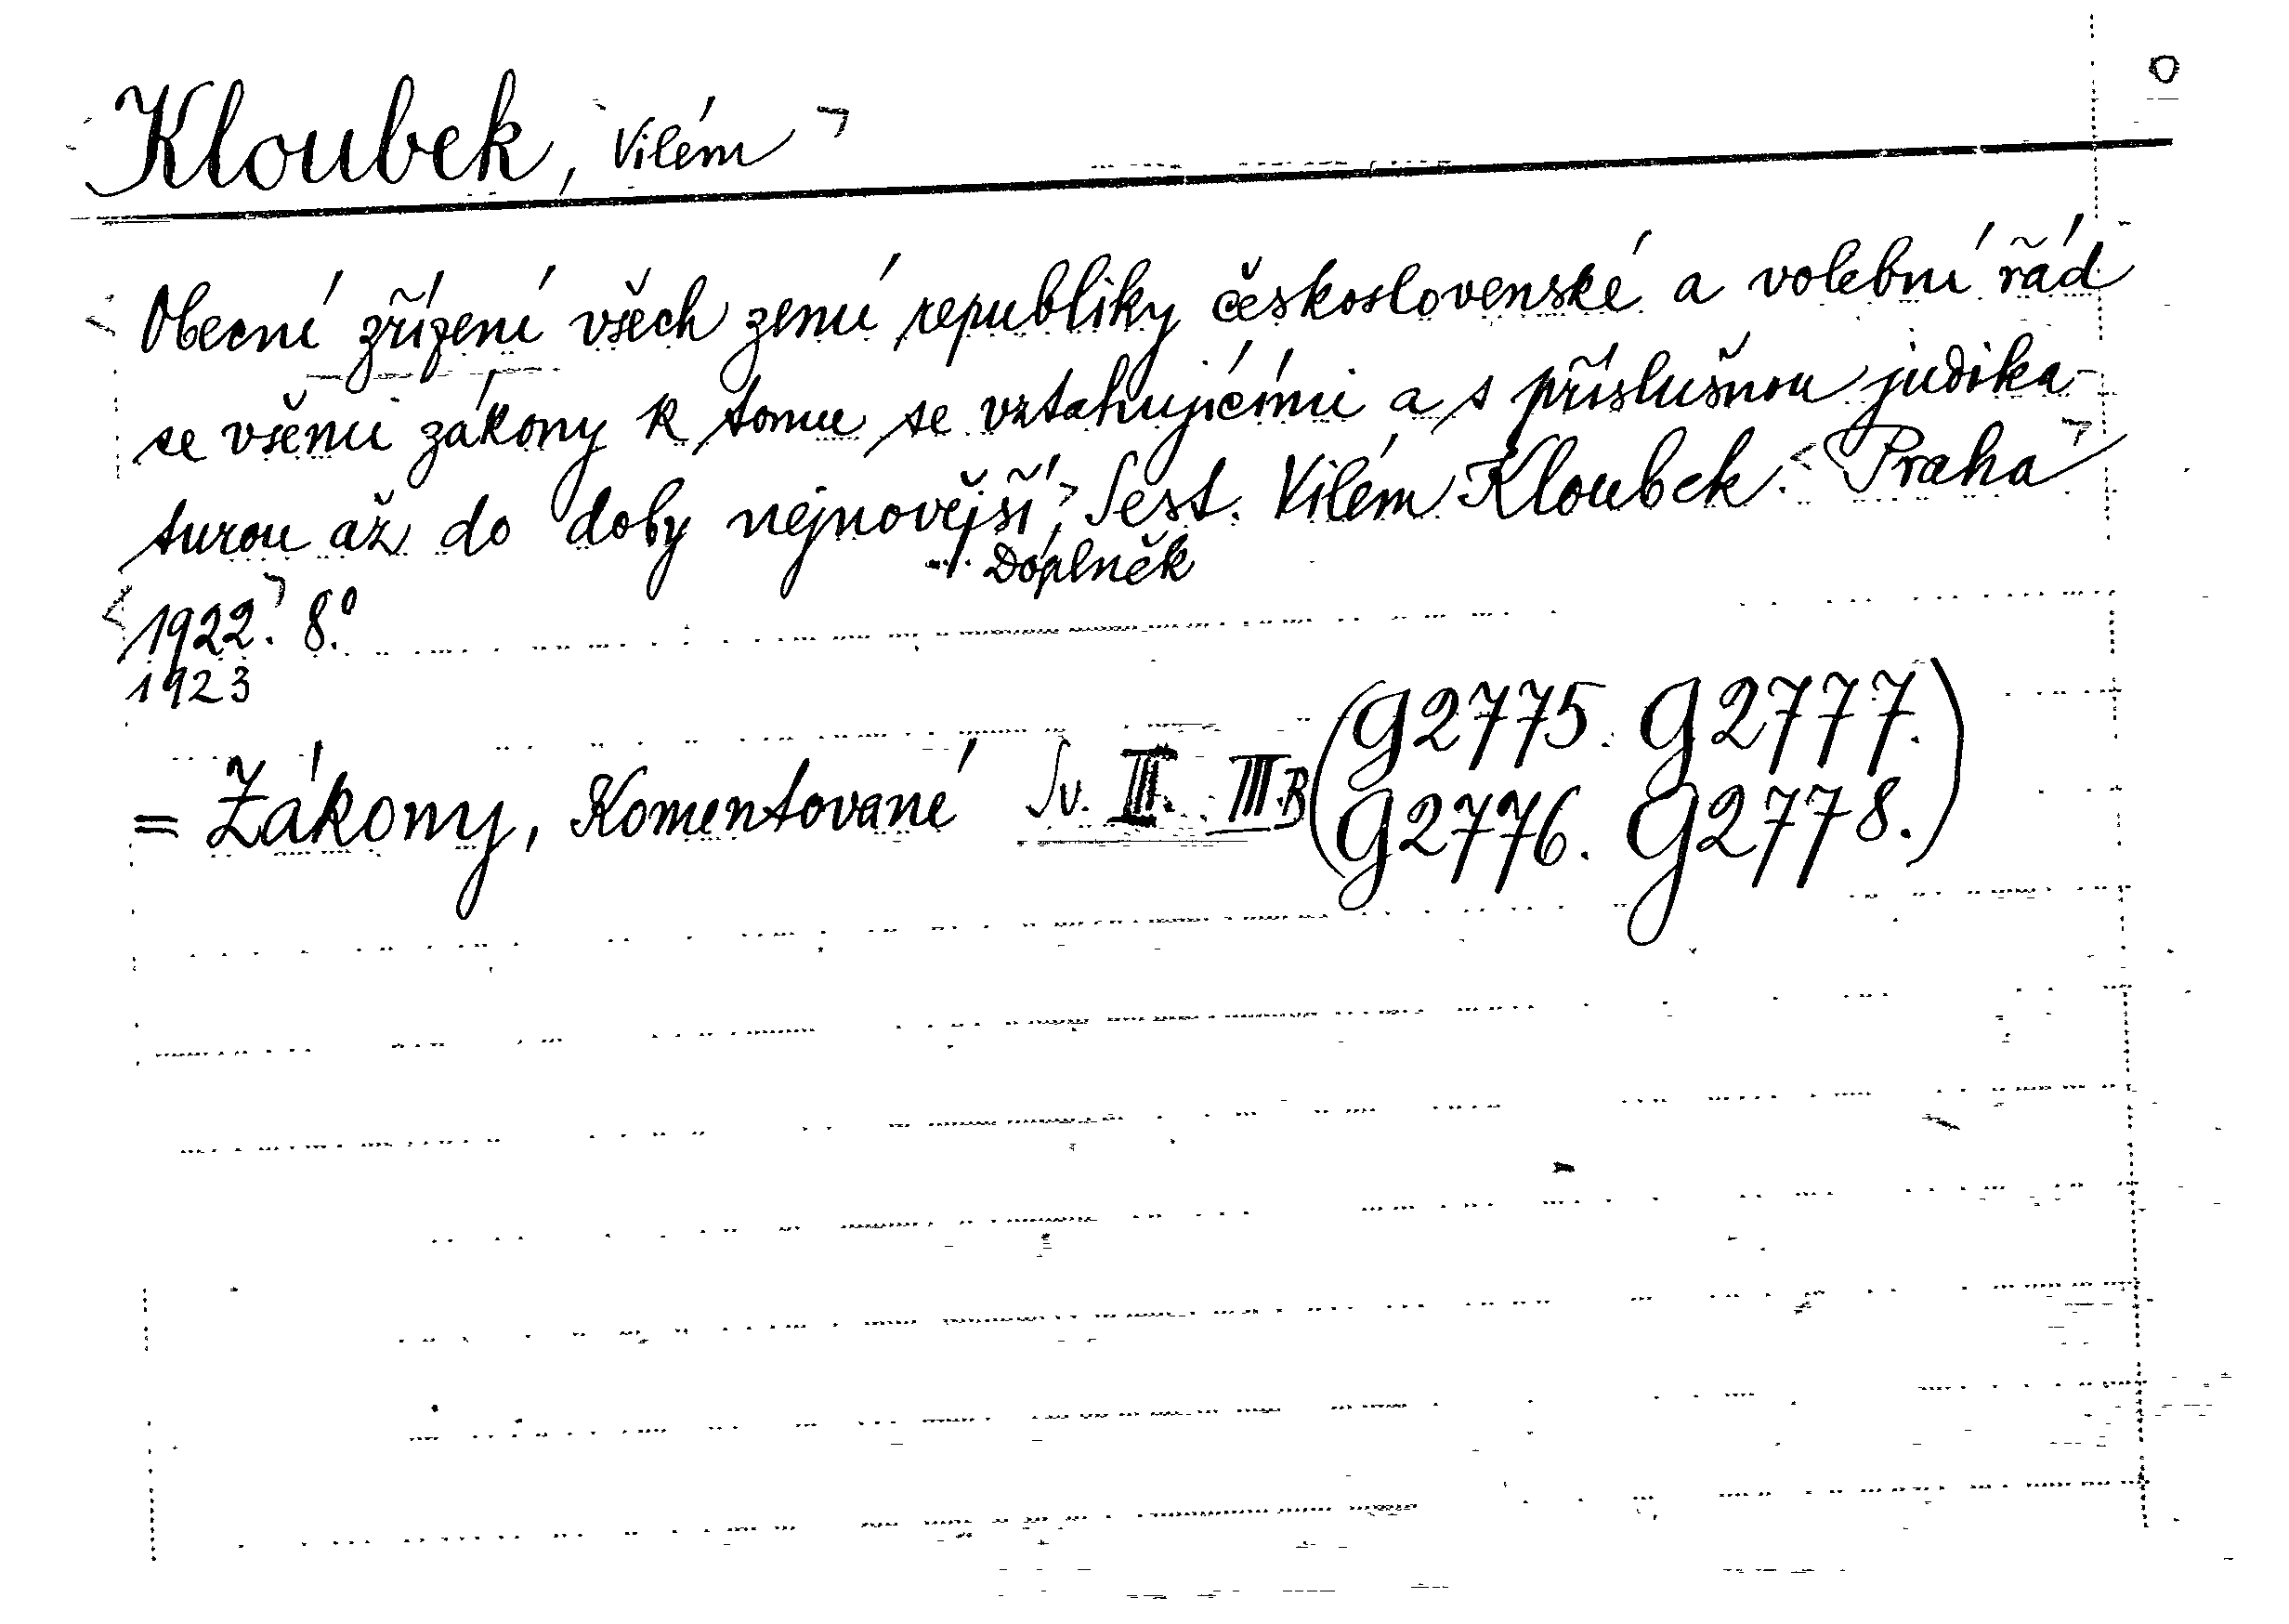 Kloubek, Vilém
Obecní zřízení všech zemí republiky československé a volební řád
se všemi zákony k tomu se vztahujícími a s příslušnou judika-
turou až do doby nejnovější, Sest. Vilém Kloubek. Praha
Doplněk
1922. 8.°
1923
= Zákony, Komentované Sv. II. III.B (G2775. G2777.
G2776. G2778.)